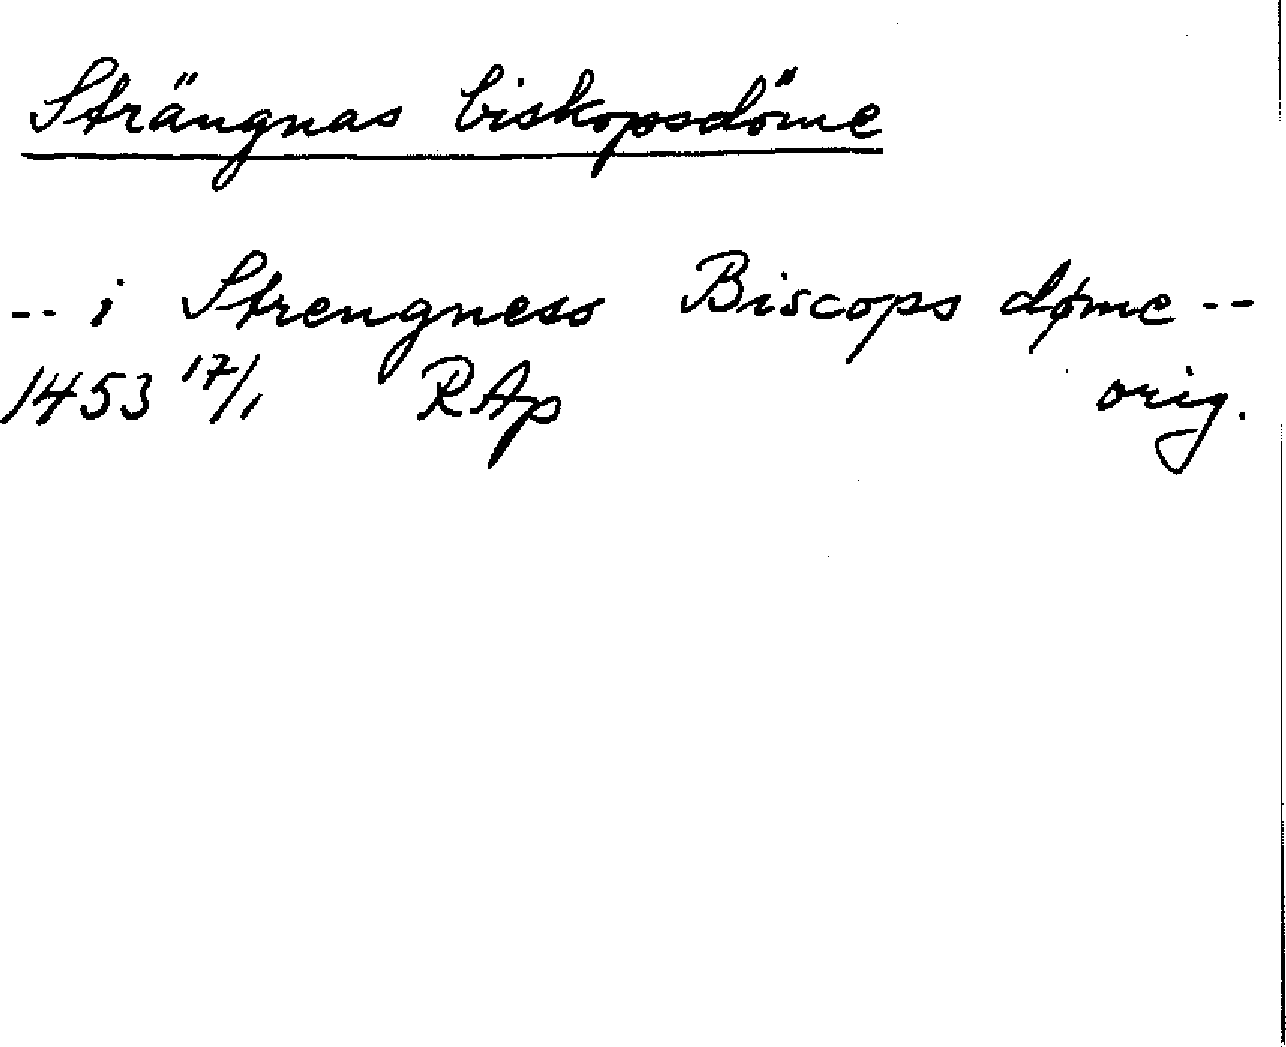 Strängnas biskopsdöme
-- i Strengness Biscops døme --
1453 17/1 RAp orig.